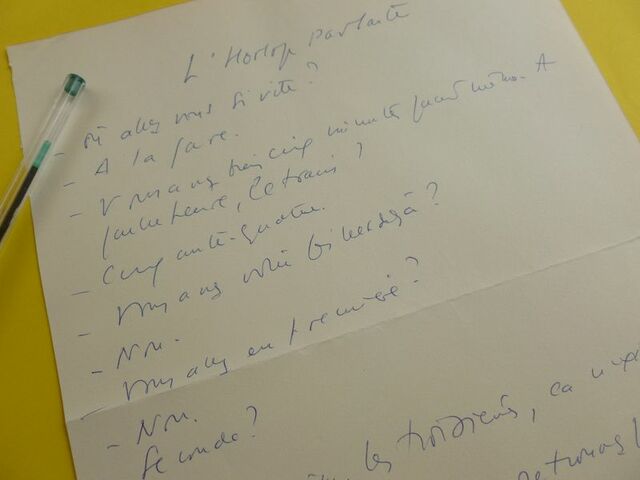 L'Horloge parlante
- Où allez vous si vite ?
- A la gare.
- Vous avez bien cinq minutes quand même. A
quelle heure, le train ?
- Cinquante-quatre.
- Vous avez votre billet déjà ?
- Non.
- Vous allez en première ?
- Non.
Seconde ?
les troisièmes, ça n'